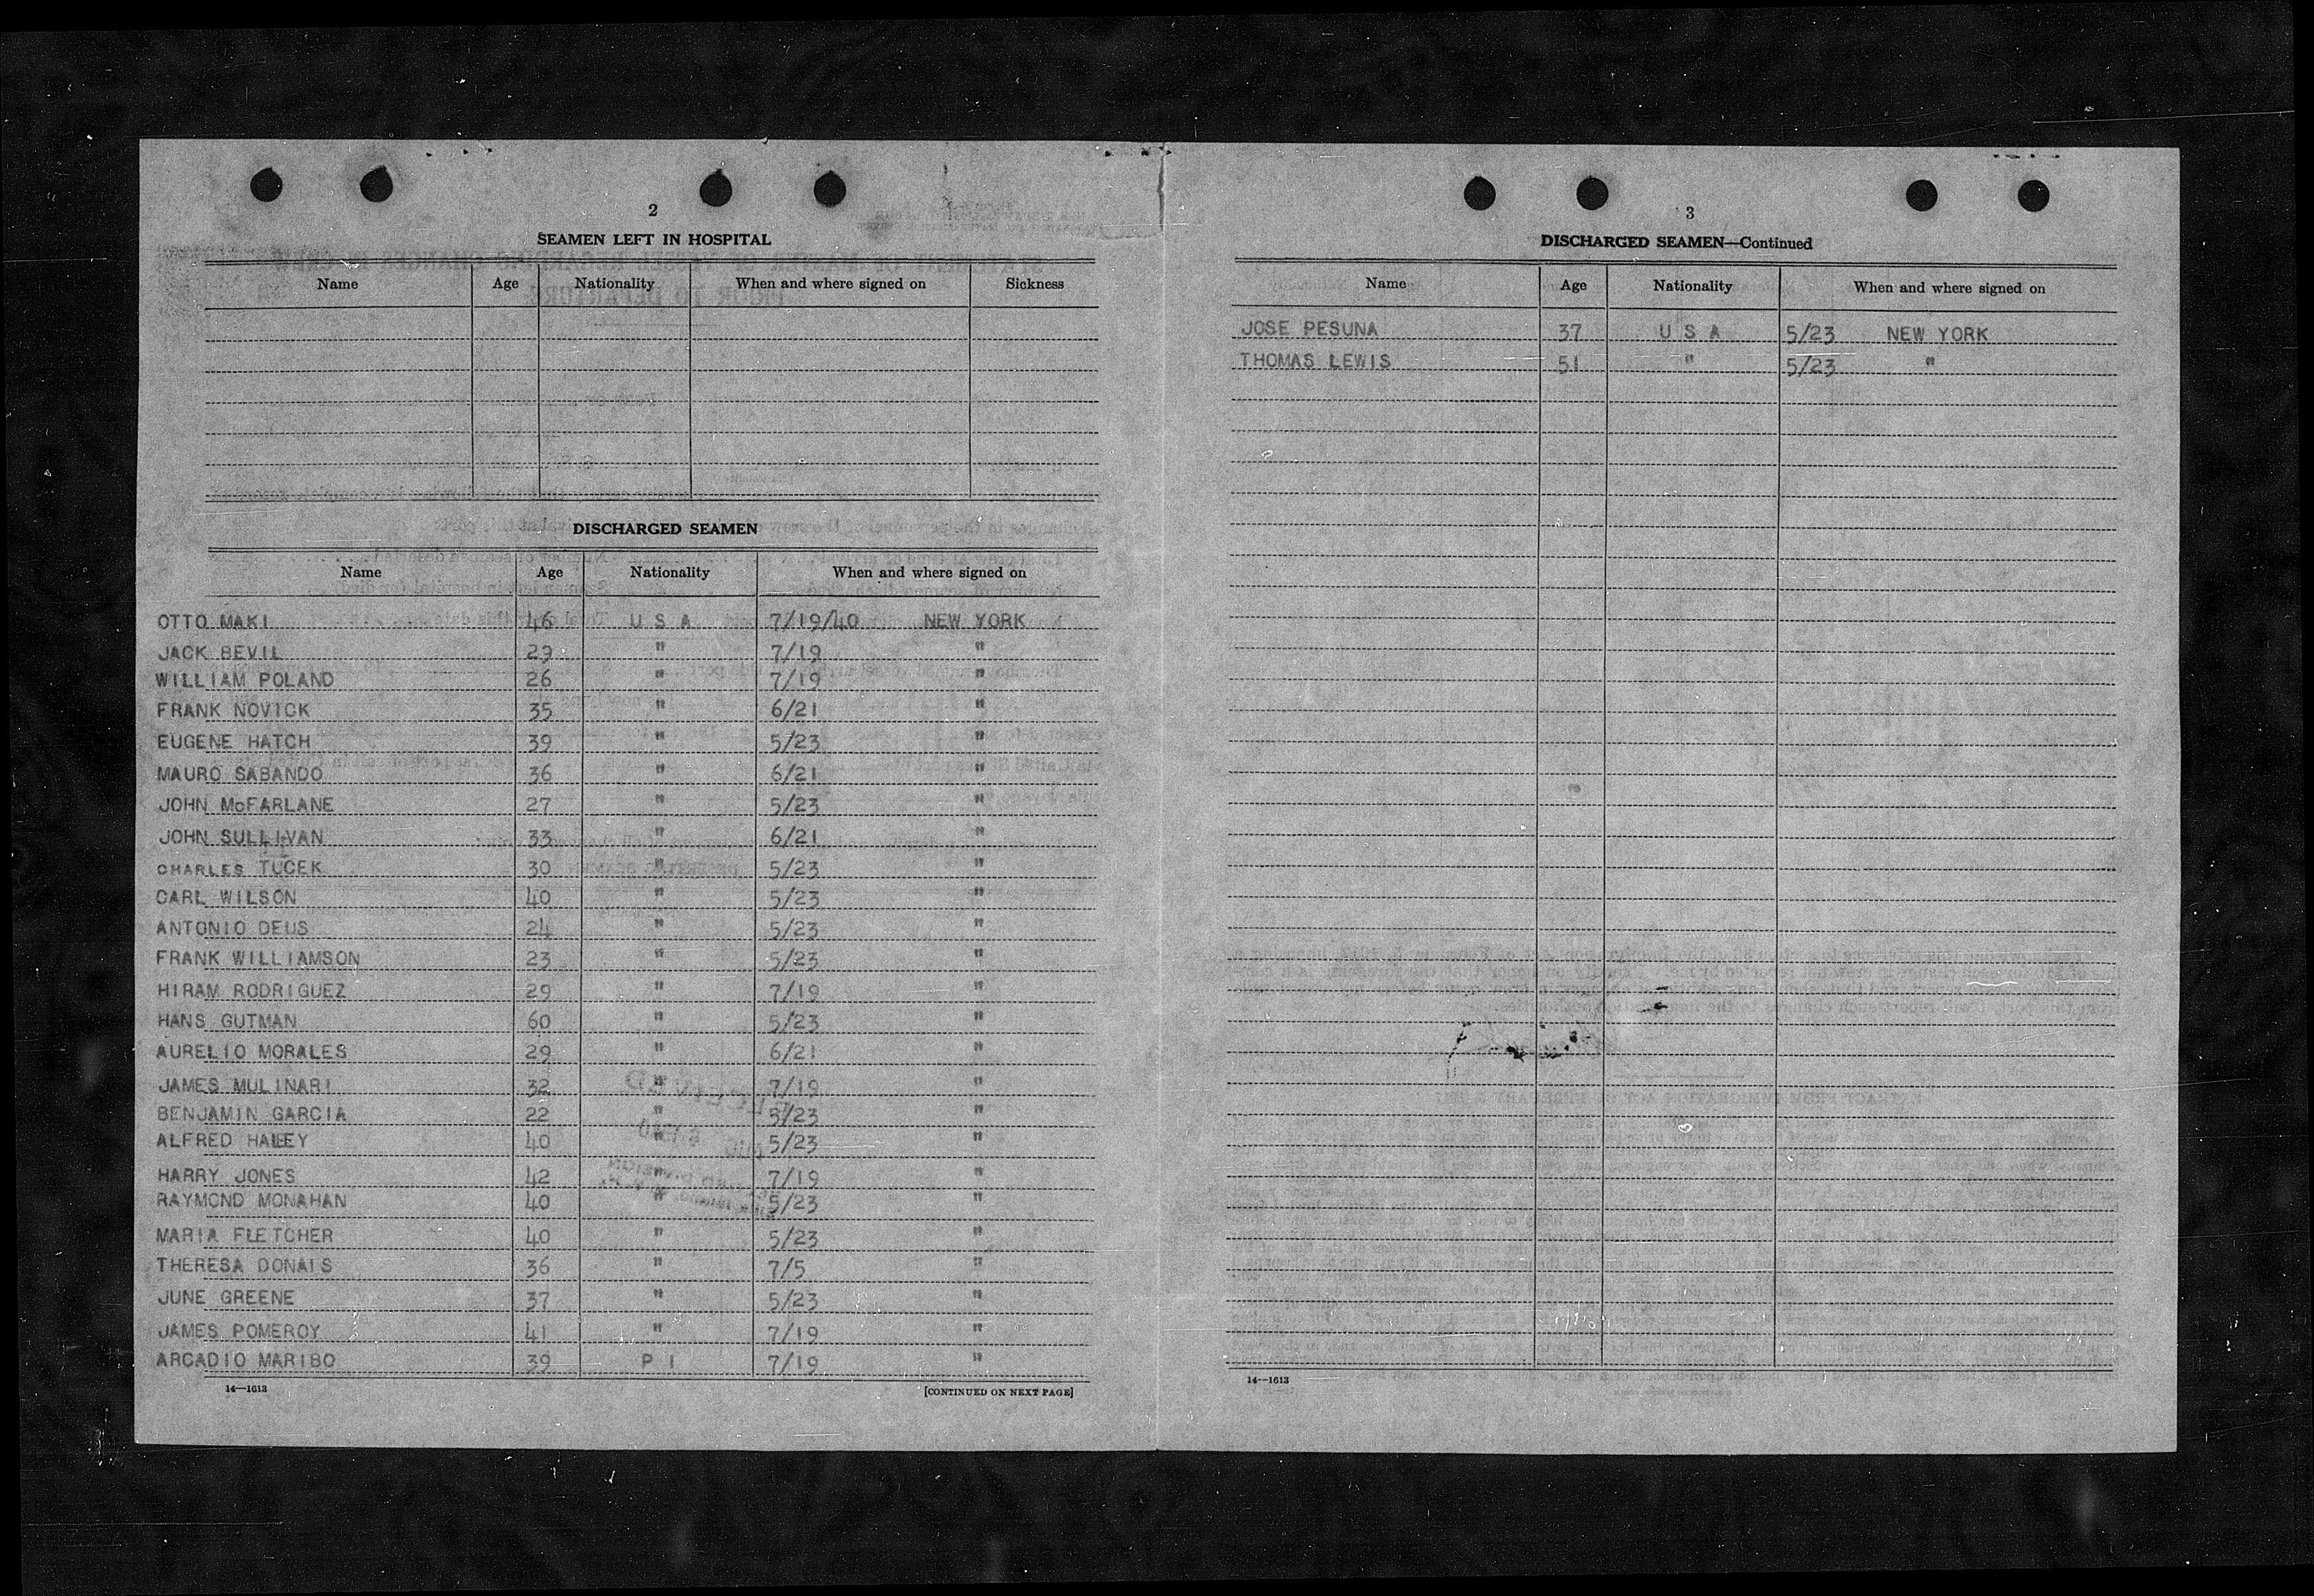 2
SEAMEN LEFT IN HOSPITAL
Name Age Nationality When and where signed on Sickness
DISCHARGED SEAMEN
Name Age Nationality When and where signed on
OTTO MAKI 46 U S A 7/19/40 NEW YORK
JACK BEVIL 29 " 7/19 "
WILLIAM POLAND 26 " 7/19 "
FRANK NOVICK 35 " 6/21 "
EUGENE HATCH 39 " 5/23 "
MAURO SABANDO 36 " 6/21 "
JOHN McFARLANE 27 " 5/23 "
JOHN SULLIVAN 33 " 6/21 "
CHARLES TUCEK 30 " 5/23 "
CARL WILSON 40 " 5/23 "
ANTONIO DEUS 24 " 5/23 "
FRANK WILLIAMSON 23 " 5/23 "
HIRAM RODRIGUEZ 29 " 7/19 "
HANS GUTMAN 60 " 5/23 "
AURELIO MORALES 29 " 6/21 "
JAMES MULINARI 32 " 7/19 "
BENJAMIN GARCIA 22 " 5/23 "
ALFRED 40 " 5/23 "
HARRY JONES 42 " 7/19 "
RAYMOND MONAHAN 40 " 5/23 "
MARIA FLETCHER 40 " 5/23 "
THERESA DONAIS 36 " 7/5 "
JUNE GREENE 37 " 5/23 "
JAMES POMEROY 41 " 7/19 "
ARCADIO MARIBO 39 P I 7/19 "
14—1613 [CONTINUED ON NEXT PAGE]
3
DISCHARGED SEAMEN—Continued
Name Age Nationality When and where signed on
JOSE PESUNA 37 U S A 5/23 NEW YORK
THOMAS LEWIS 51 " 5/23 "
14—1613